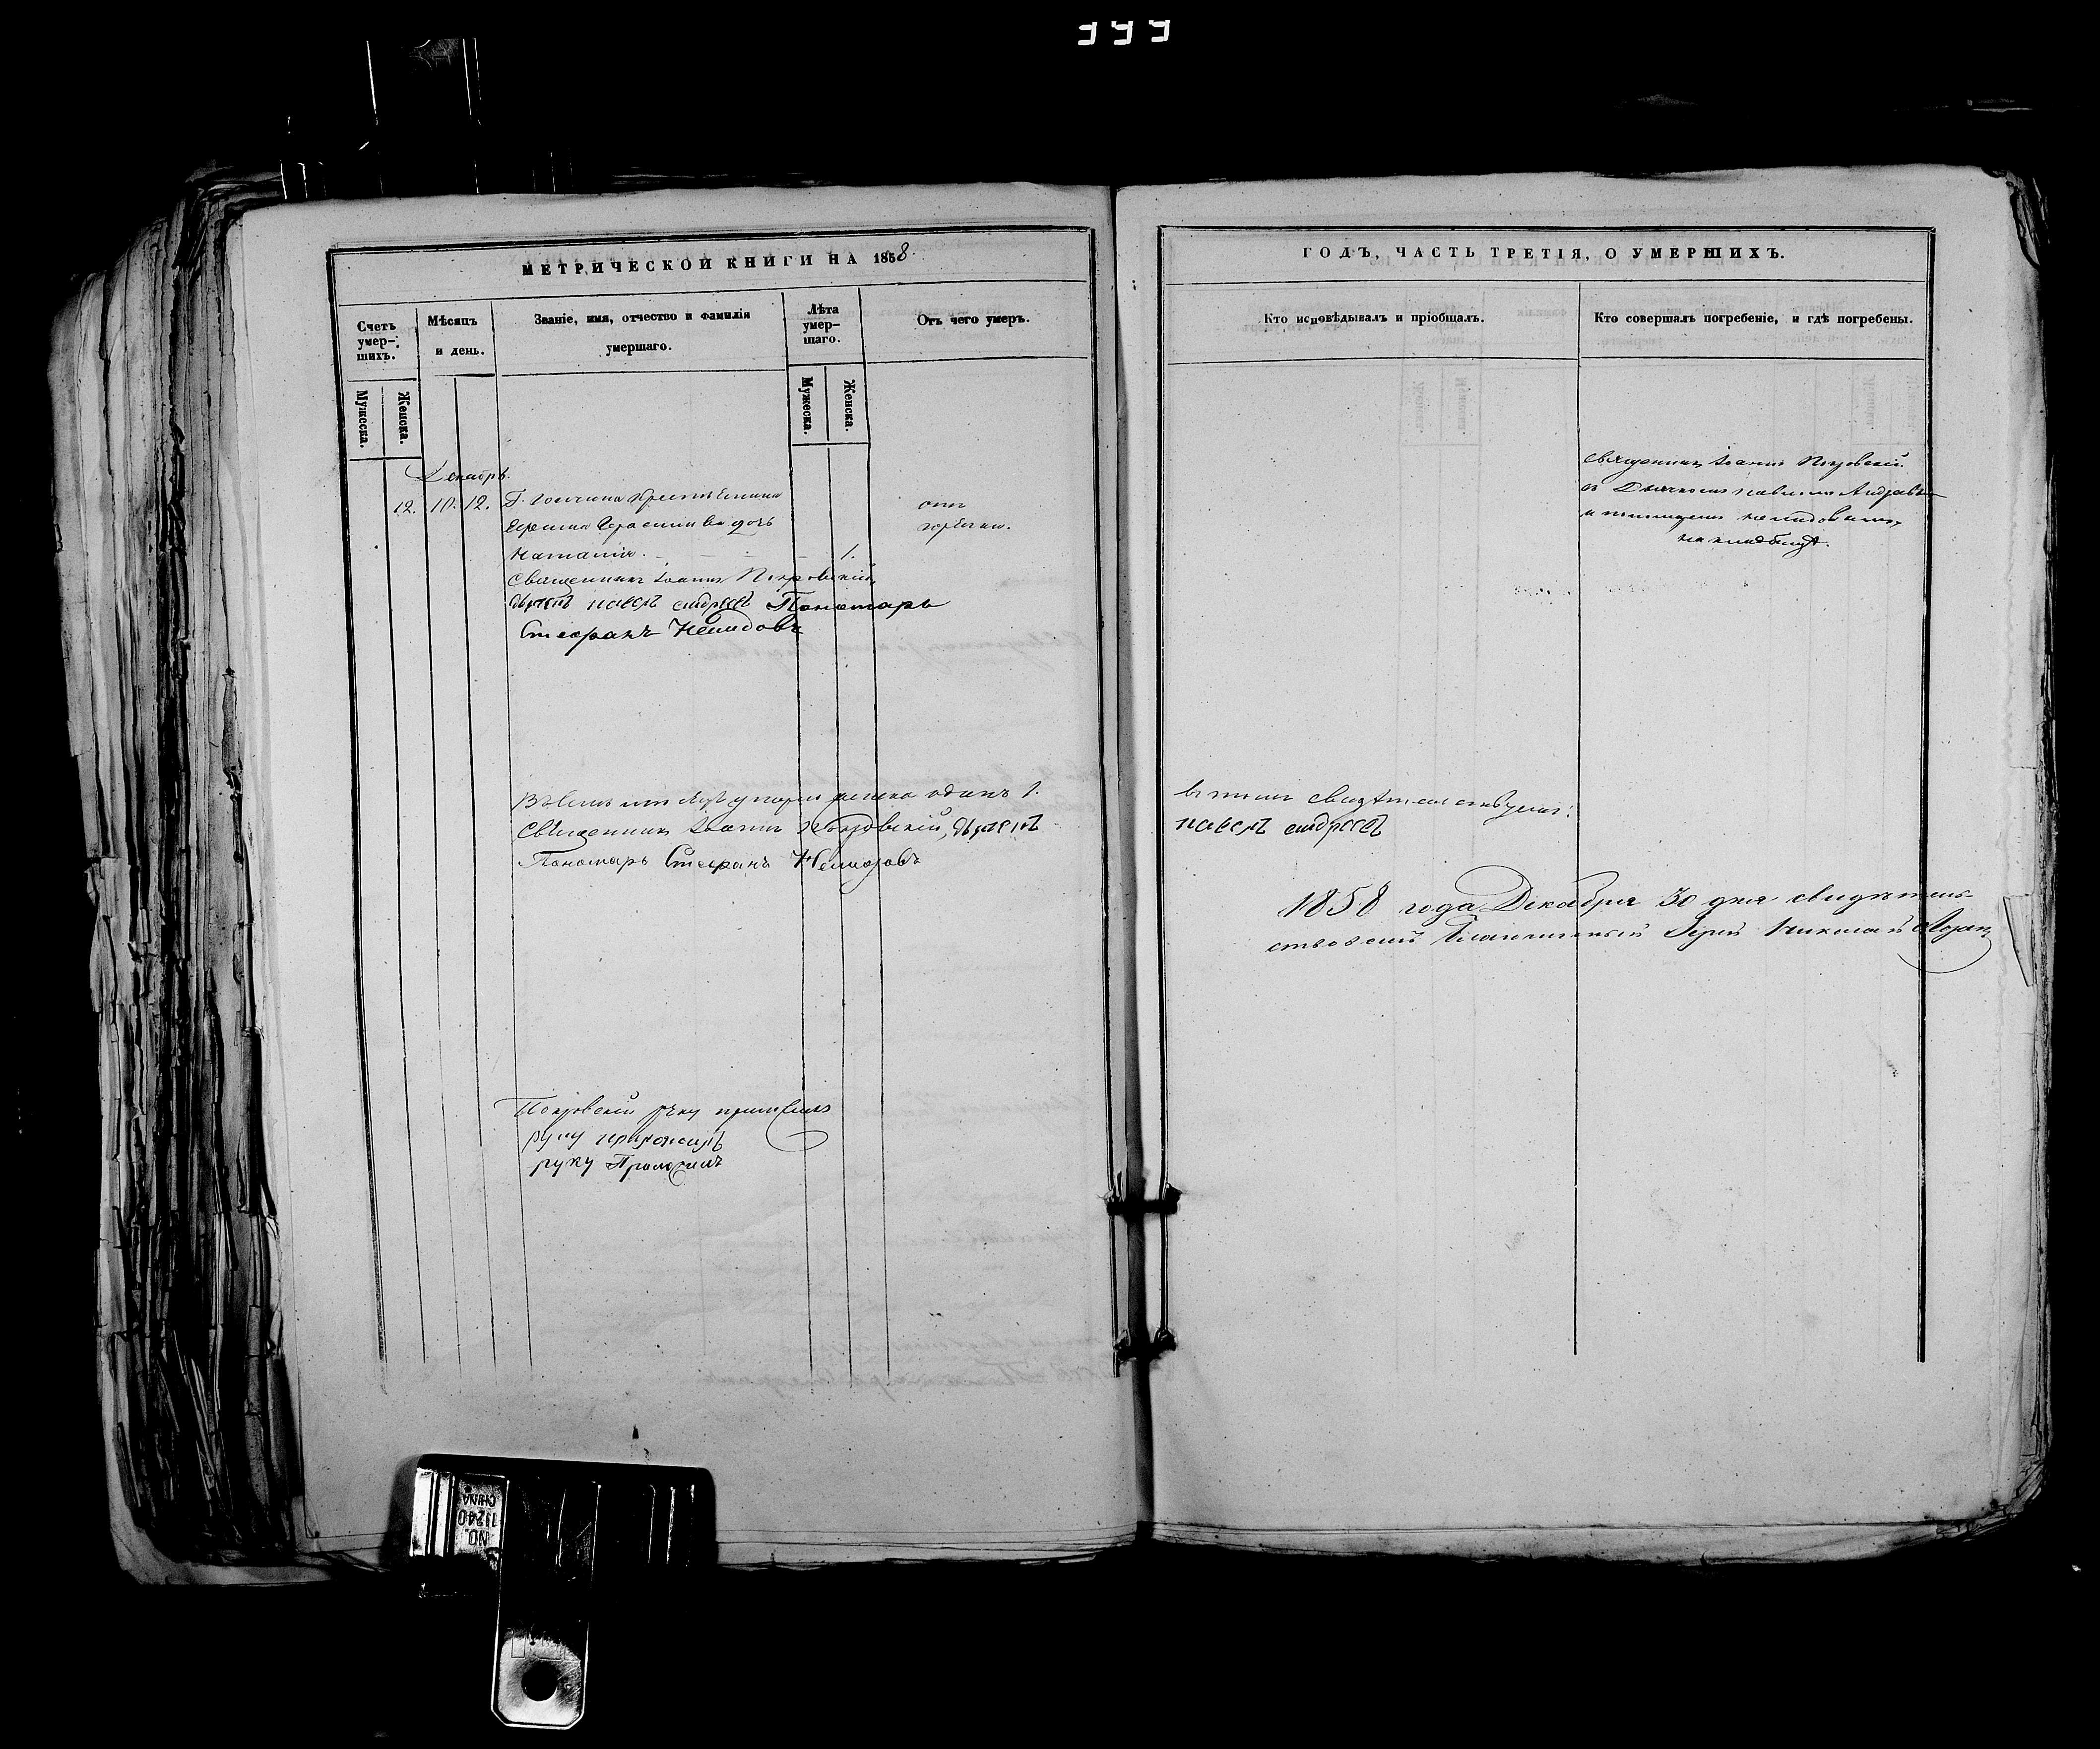 МЕТРИЧЕСКОЙ КНИГИ НА 1858
Счетъ умер-шихъ.
Мѣсяцъ и день.
Званіе, имя, отчество и фамилія умершаго.
Лѣта умер-шаго.
Отъ чего умеръ.
Мужеска.
Женска.
Мужеска.
Женска.
Декабрь.
12. 10. 12. Г. крестьянина
дочь
Наталія. 1.
отъ
горячки.
Священникъ Іоаннъ Покровскій,
дьячекъ павелъ андреевъ Пономарь
Стефанъ Немидовъ
одинъ 1.
Священникъ Іоаннъ Покровскій, дьячекъ
Пономарь Стефанъ Немидовъ
Покровскій руку приложилъ
руку приложилъ
руку Приложилъ
ГОДЪ, ЧАСТЬ ТРЕТІЯ, О УМЕРШИХЪ.
Кто исповѣдывалъ и пріобщалъ.
Кто совершалъ погребеніе, и гдѣ погребены.
Священникъ Іоаннъ Покровскій
съ Дьячкомъ павломъ Андреевымъ
и пономаремъ
на кладбищѣ.
въ томъ
павелъ андреевъ
1858 года Декабря 30 дня свидѣтель-
ствовалъ Благочинный Іерей Николай
NO.
11240
CHINA